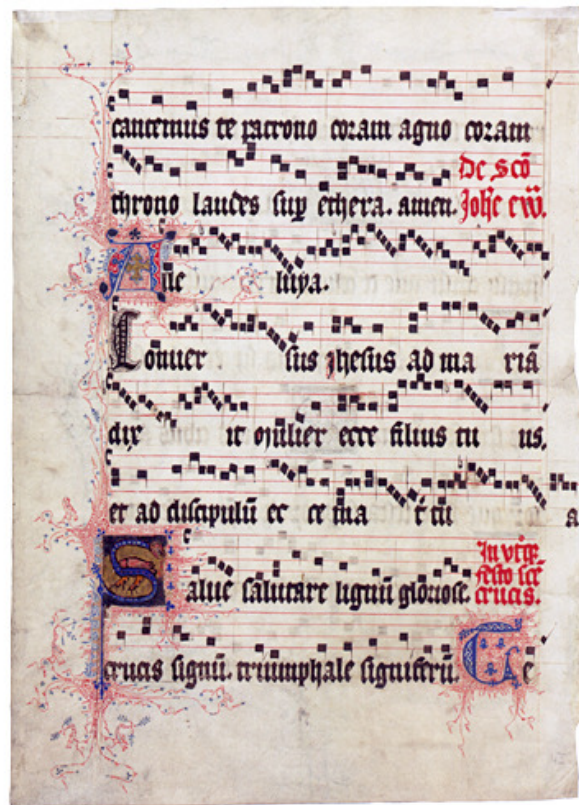 cantemus te patrono coram agno coram
throno laudes sup ethera. amen. De sco
Joħe ew̄.
Alle luya.
Conuer sus jhesus ad ma riā
dix it mulier ecce filius tu us.
et ad discipulū ec ce ma r tu a
In utrq̄
festo scē
crucis.
Salue salutare lignū gloriose
crucis signū. triumphale signiferū. Te